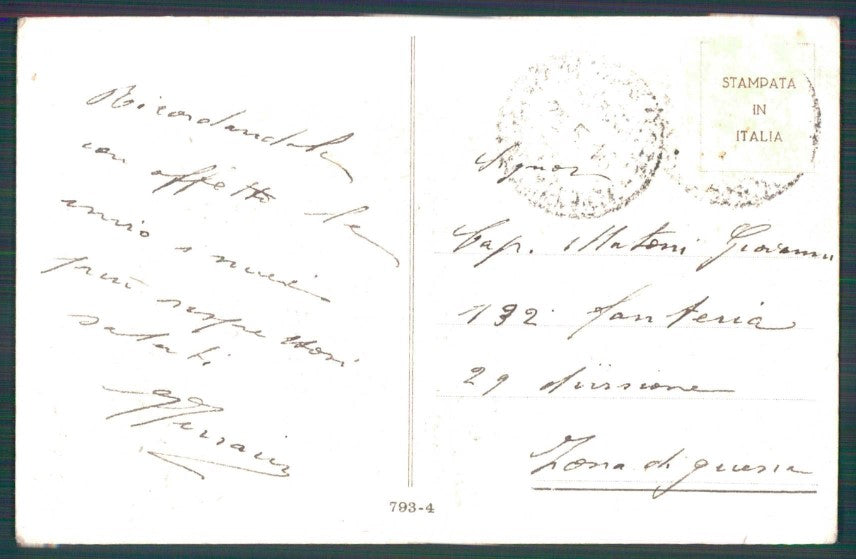 Ricordandola
con affetto le
invio i miei
più rispettosi
saluti.
STAMPATA
IN
ITALIA
Signor
Cap. Matoni Giovanni
132 fanteria
29 divisione
Zona di guerra
793-4